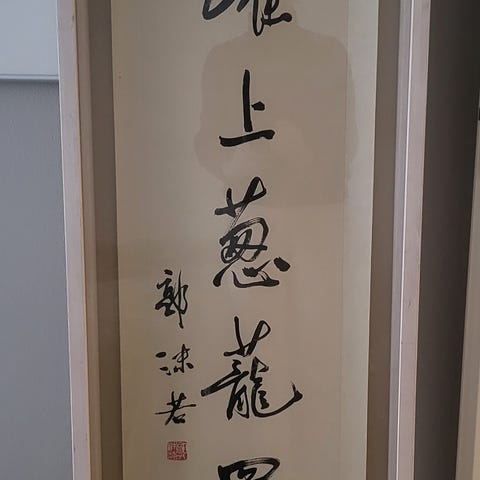 上蔥蘢
郭沫若